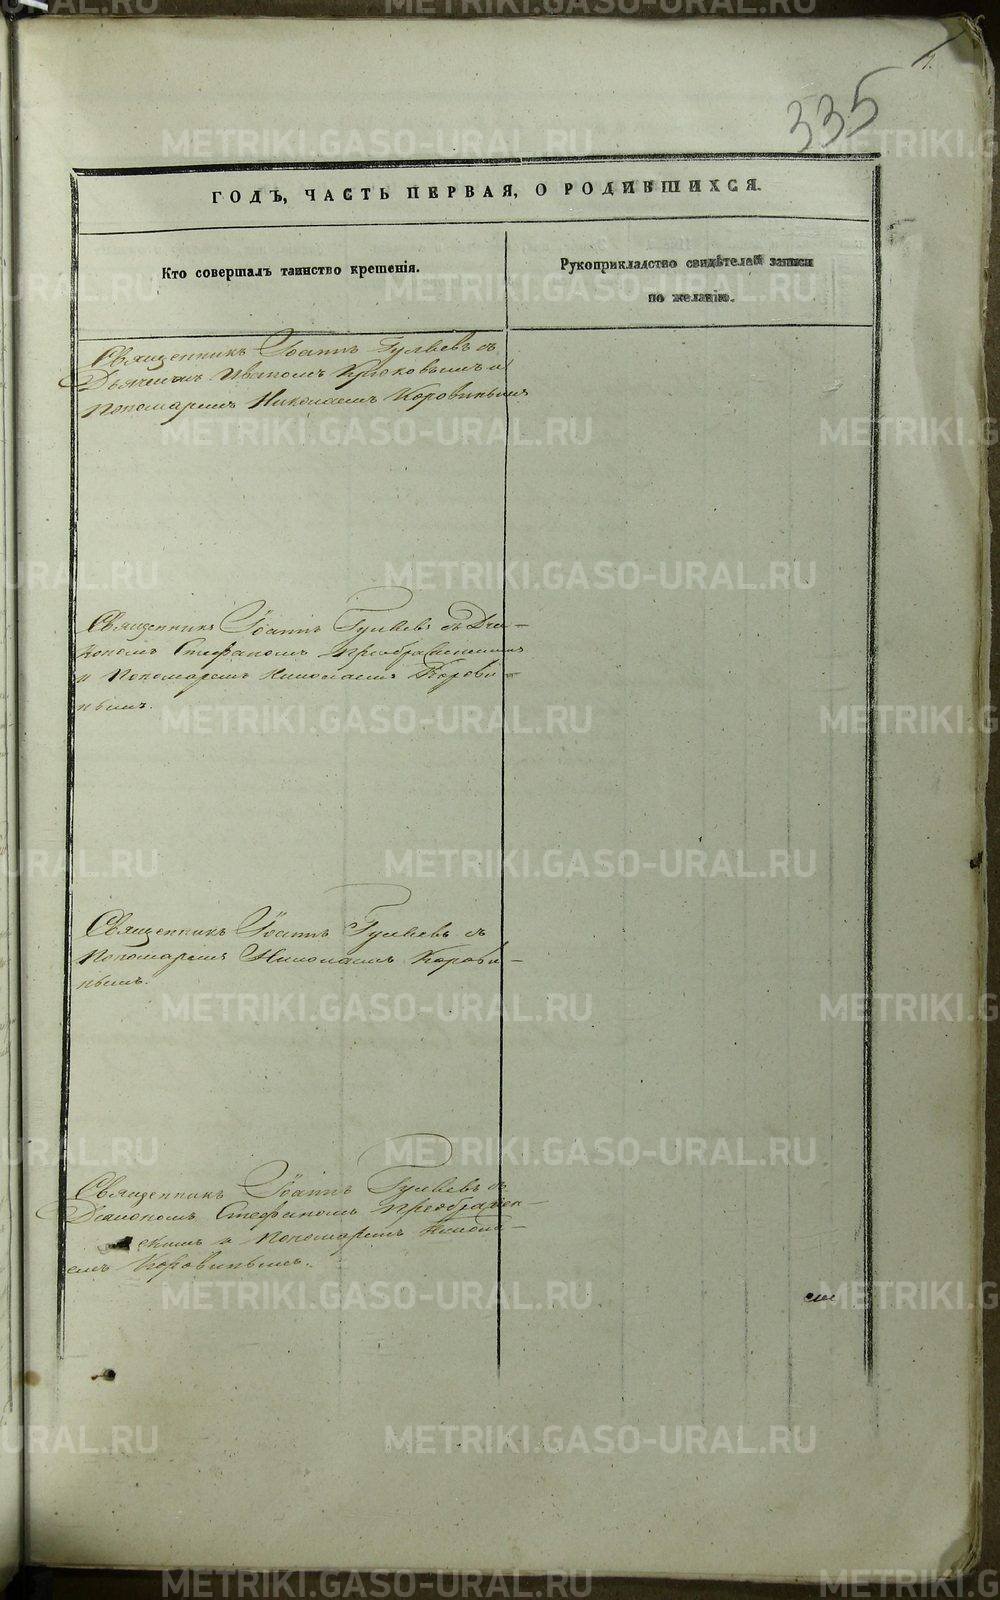 335
ГОДЪ, ЧАСТЬ ПЕРВАЯ, О РОДИВШИХСЯ.
Кто совершалъ таинство крещенія.
Рукоприкладство свидѣтелей записи
по желанію.
Священникъ Іоаннъ Гуляевъ съ
Дьячкомъ Иваномъ Крюковымъ и
Пономаремъ Николаемъ Коровинымъ
Священникъ Іоаннъ Гуляевъ съ Діа-
кономъ Стефаномъ Преображенскимъ
и Пономаремъ Николаемъ Корови-
нымъ.
Священникъ Іоаннъ Гуляевъ съ
Пономаремъ Николаемъ Корови-
нымъ.
Священникъ Іоаннъ Гуляевъ съ
Діакономъ Стефаномъ Преображен-
скимъ и Пономаремъ Никола-
емъ Коровинымъ.
METRIKI.GASO-URAL.RU